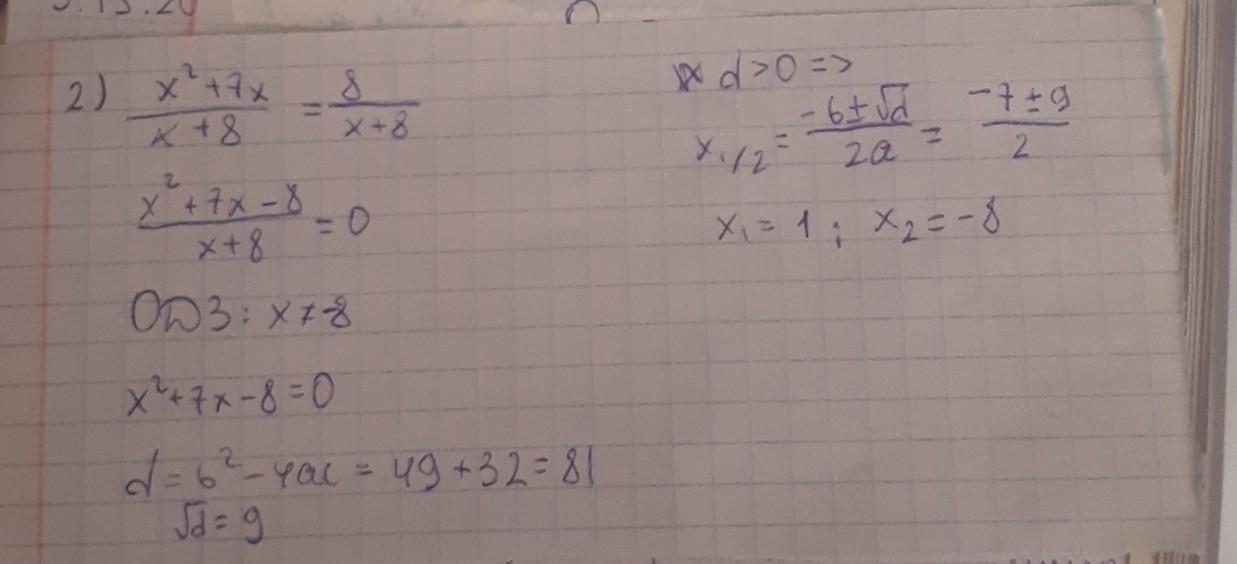 2) (x²+7x)/(x+8) = 8/(x+8)
(x²+7x-8)/(x+8) = 0
ОДЗ: x≠-8
x²+7x-8=0
d=b²-4ac = 49+32=81
√d=9
d>0 =>
x₁/₂ = (-b±√d)/(2a) = (-7±9)/2
x₁=1; x₂=-8